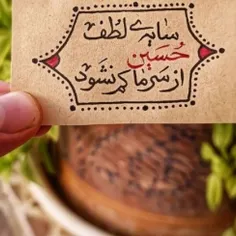 سایه‌ی لطف
حُسین
از سرِ ما کم نشود